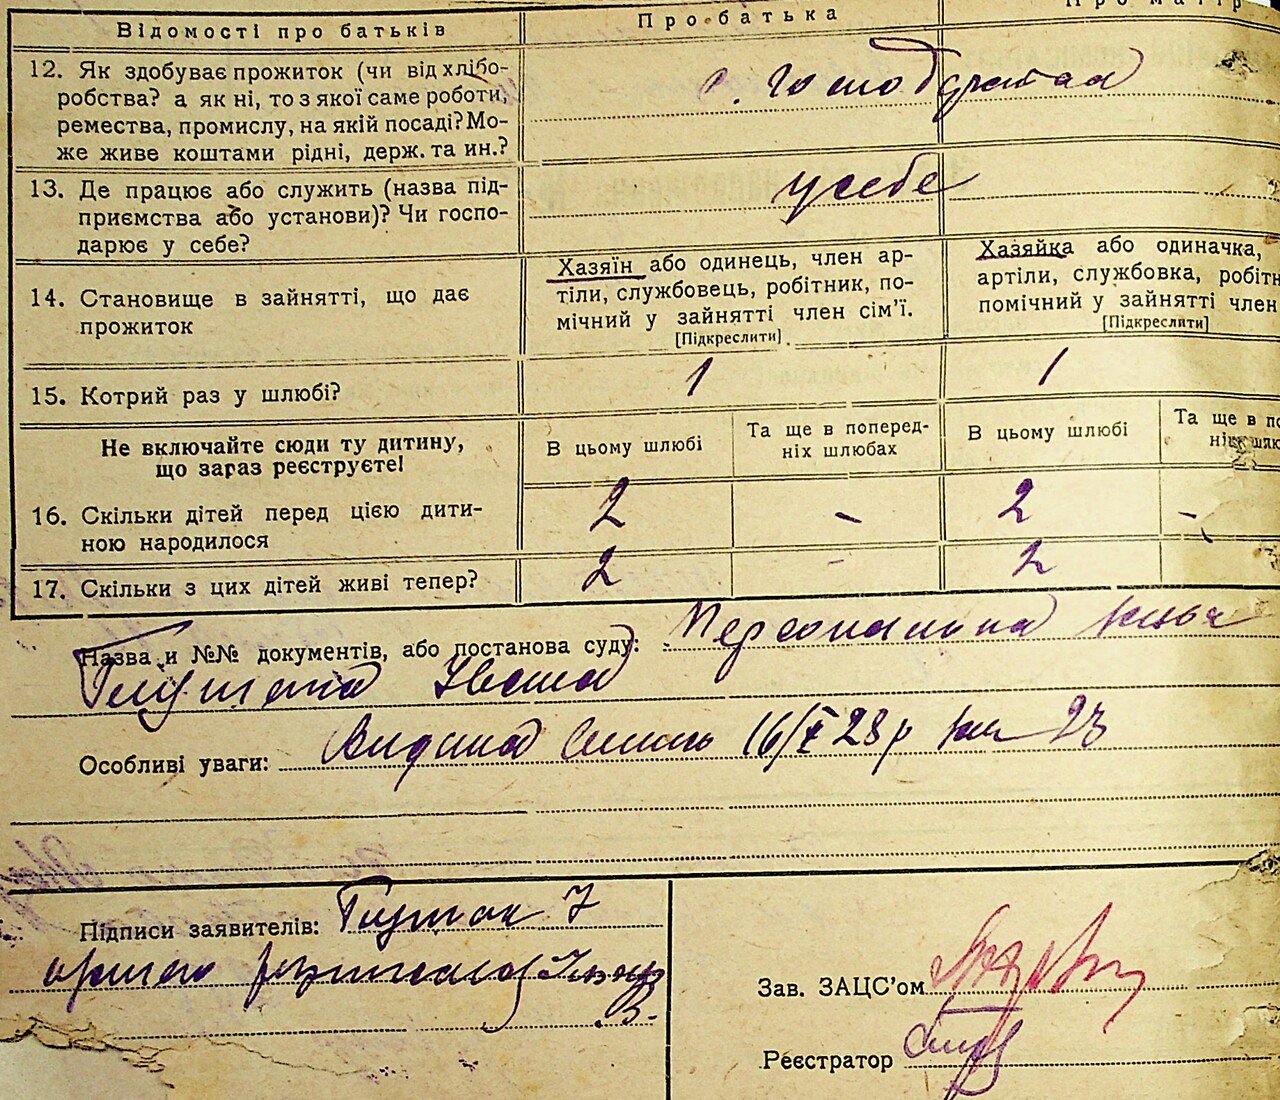 Відомості про батьків
Про батька
12. Як здобуває прожиток (чи від хлібо-
робства? а як ні, то з якої саме роботи,
ремества, промислу, на якій посаді? Мо-
же живе коштами рідні, держ. та ин.?
13. Де працює або служить (назва під-
приємства або установи)? Чи госпо-
дарює у себе?
у себе
14. Становище в зайнятті, що дає
прожиток
Хазяїн або одинець, член ар-
тілі, службовець, робітник, по-
мічний у зайнятті член сім'ї.
[Підкреслити].
Хазяйка або одиначка,
артілі, службовка, робітн
помічний у зайнятті член
[Підкреслити]
15. Котрий раз у шлюбі?
1
1
Не включайте сюди ту дитину,
що зараз реєструєте!
В цьому шлюбі
Та ще в поперед-
ніх шлюбах
В цьому шлюбі
Та ще в по
ніх шлю
16. Скільки дітей перед цією дити-
ною народилося
2
-
2
-
17. Скільки з цих дітей живі тепер?
2
-
2
Назва и №№ документів, або постанова суду: Персональна
Івана
Особливі уваги: 16/X 28 р 23
Підписи заявителів:
Зав. ЗАЦС'ом
Реєстратор